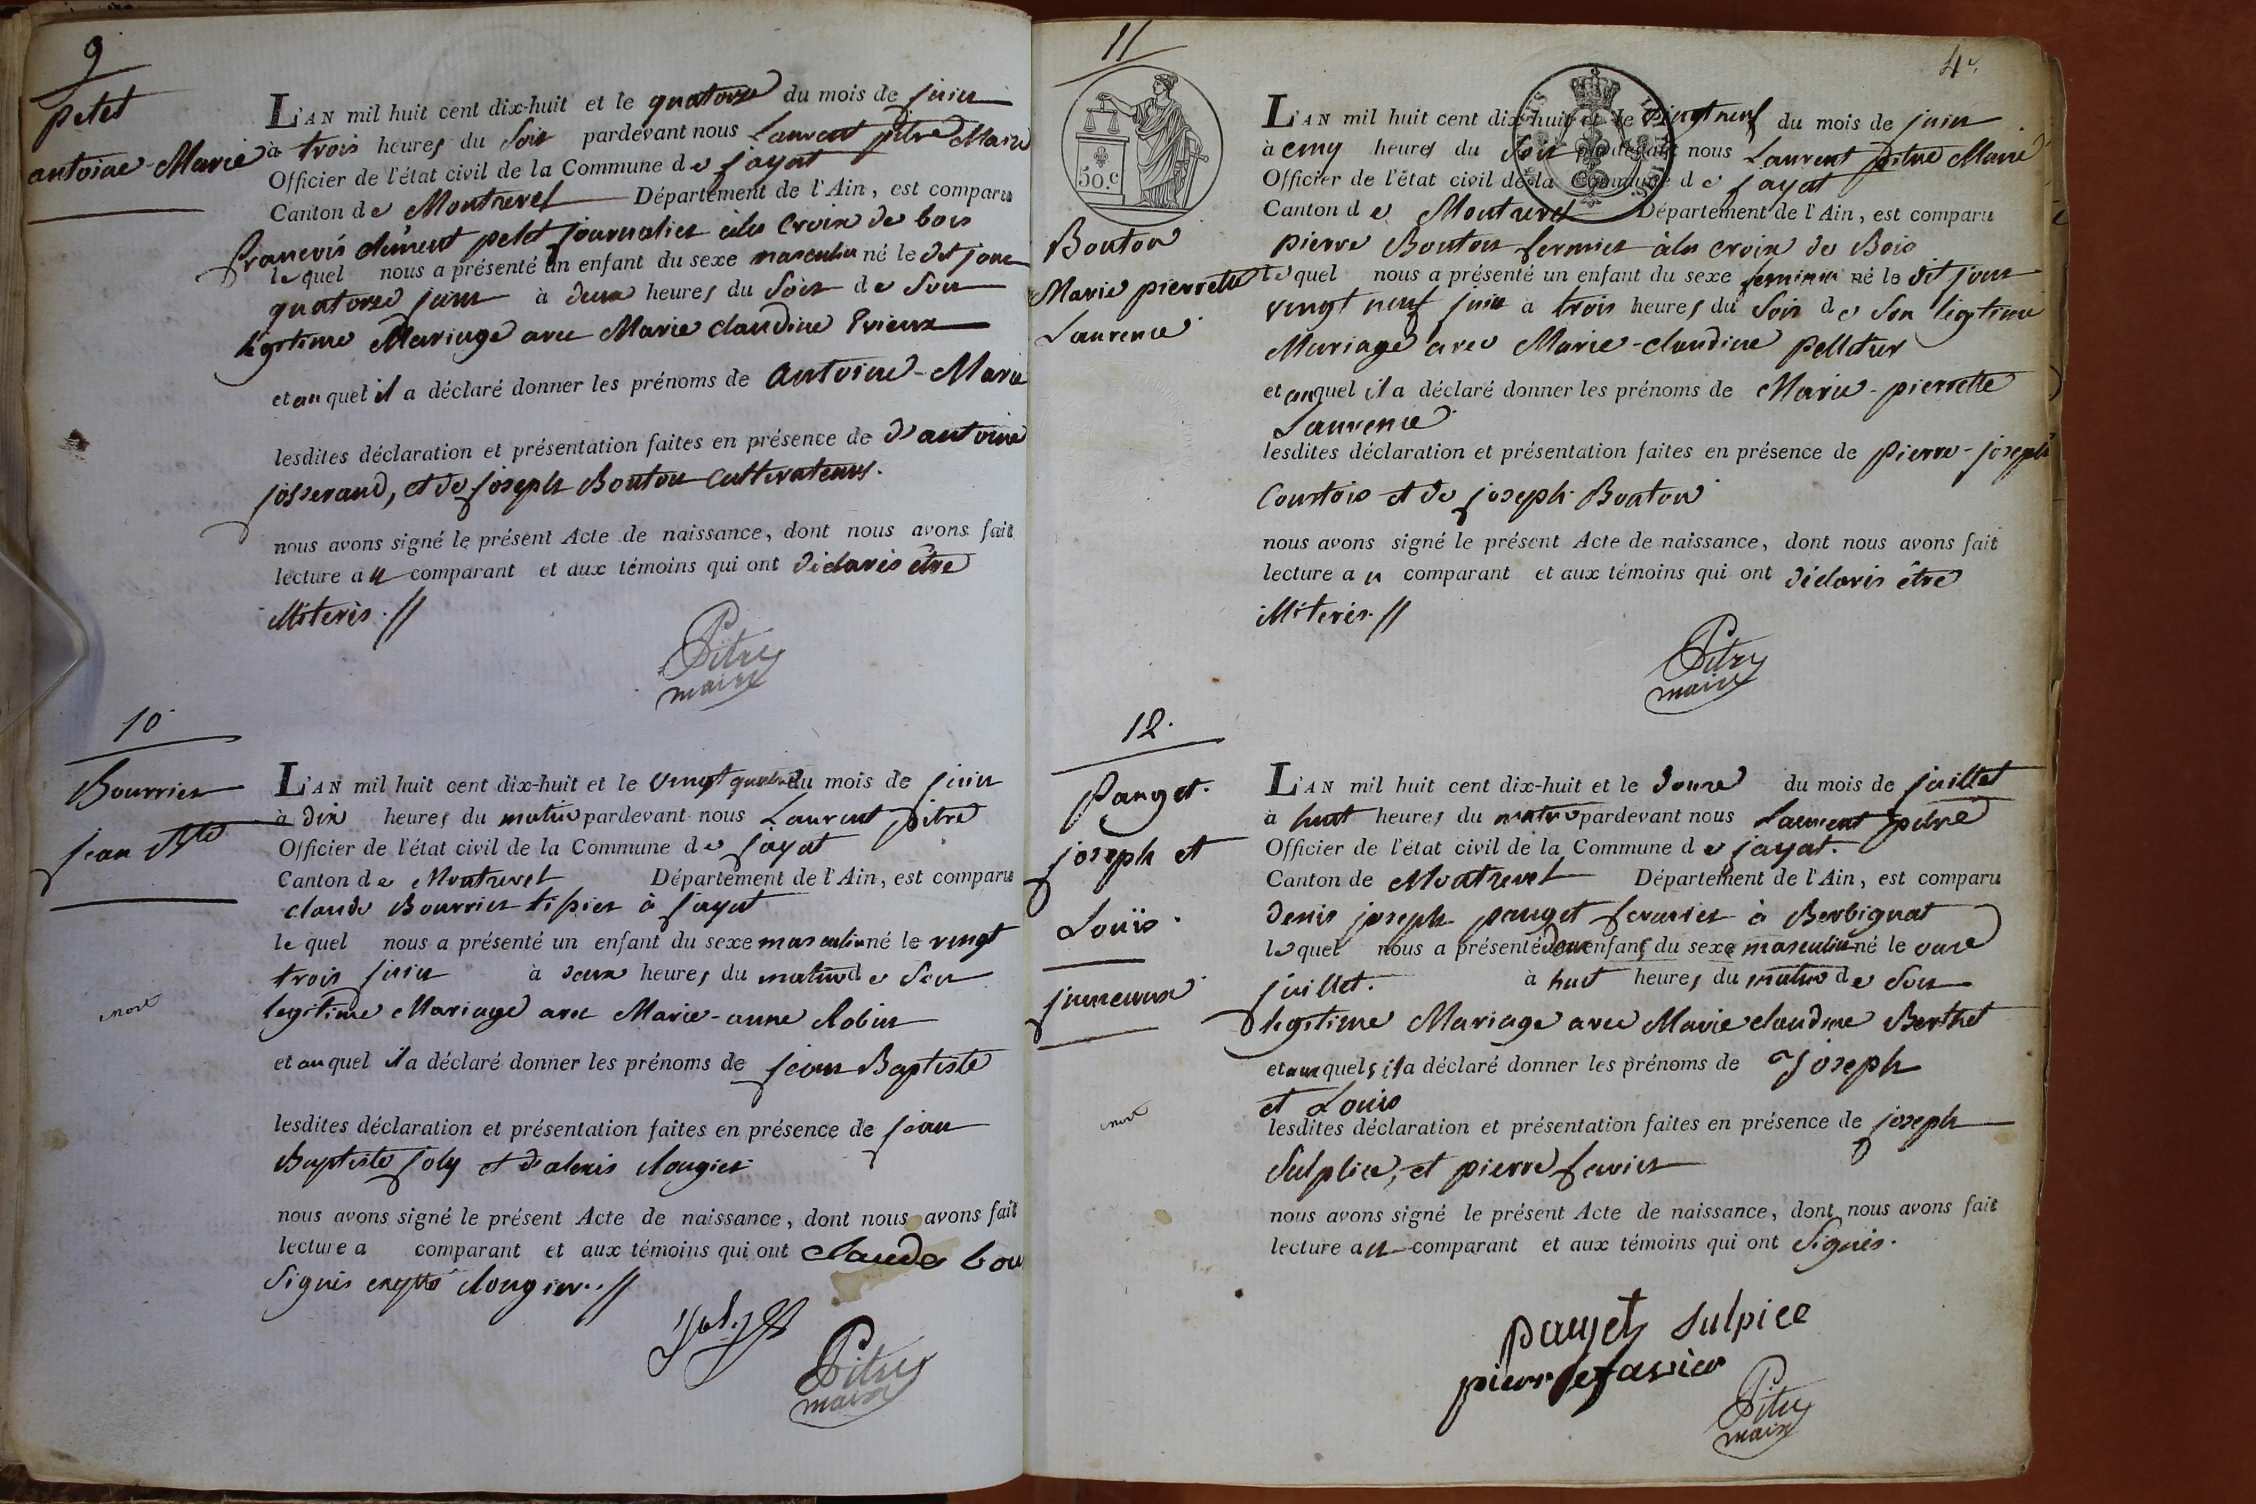 9
petet
antoine-Marie
L'AN mil huit cent dix-huit et le quatorze du mois de juin
à trois heures du soir pardevant nous Laurent pitre Maire
Officier de l'état civil de la Commune de jayat
Canton de Montrevel Département de l'Ain, est comparu
françois clément petet journalier à la croix de bois
lequel nous a présenté un enfant du sexe masculin né le dit jour
quatorze juin à deux heures du soir de son
légitime Mariage avec Marie claudine
et auquel il a déclaré donner les prénoms de antoine-Marie
lesdites déclaration et présentation faites en présence de d'antoine
josserand, et de joseph Bouton cultivateurs.
nous avons signé le présent Acte de naissance, dont nous avons fait
lecture au comparant et aux témoins qui ont déclarés être
illiterés.//
Pitre
maire
10
Bourrier
jean Bte
mort
L'AN mil huit cent dix-huit et le vingt quatre du mois de juin
à dix heures du matin pardevant nous Laurent pitre
Officier de l'état civil de la Commune de jayat
Canton de Montrevel Département de l'Ain, est comparu
claude Bourrier tissier à jayat
lequel nous a présenté un enfant du sexe masculin né le vingt
trois juin à deux heures du matin de son
légitime Mariage avec Marie-anne Robin
et auquel il a déclaré donner les prénoms de jean Baptiste
lesdites déclaration et présentation faites en présence de jean
Baptiste joly et d'alexis
nous avons signé le présent Acte de naissance, dont nous avons fait
lecture a comparant et aux témoins qui ont claude bou
signés excepté
joly
Pitre
maire
11
4e.
50.c
Bouton
Marie pierrette
Laurence
L'AN mil huit cent dix-huit et le vingt neuf du mois de juin
à cinq heures du soir pardevant nous Laurent pitre Maire
Officier de l'état civil de la Commune de jayat
Canton de Montrevel Département de l'Ain, est comparu
pierre Bouton fermier à la croix de Bois
lequel nous a présenté un enfant du sexe feminin né le dit jour
vingt neuf juin à trois heures du soir de son légitime
Mariage avec Marie-claudine pelletier
et auquel il a déclaré donner les prénoms de Marie-pierrette
Laurence
lesdites déclaration et présentation faites en présence de pierre-joseph
Courtois et de joseph Bouton
nous avons signé le présent Acte de naissance, dont nous avons fait
lecture au comparant et aux témoins qui ont déclarés être
illiterés.//
Pitre
maire
12.
pauget.
joseph et
Louïs.
jumeaux
mort
L'AN mil huit cent dix-huit et le douze du mois de juillet
à huit heures du matin pardevant nous Laurent pitre
Officier de l'état civil de la Commune de jayat.
Canton de Montrevel Département de l'Ain, est comparu
denis joseph pauget fermier à Berbignat
lequel nous a présenté deux enfans du sexe masculin né le onze
juillet. à huit heures du matin de son
légitime Mariage avec Marie claudine Berthet
et auxquels il a déclaré donner les prénoms de Joseph
et Louis
lesdites déclaration et présentation faites en présence de joseph
Sulpice, et pierre favier
nous avons signé le présent Acte de naissance, dont nous avons fait
lecture au comparant et aux témoins qui ont signés.
pauget Sulpice
pierre favier
Pitre
maire